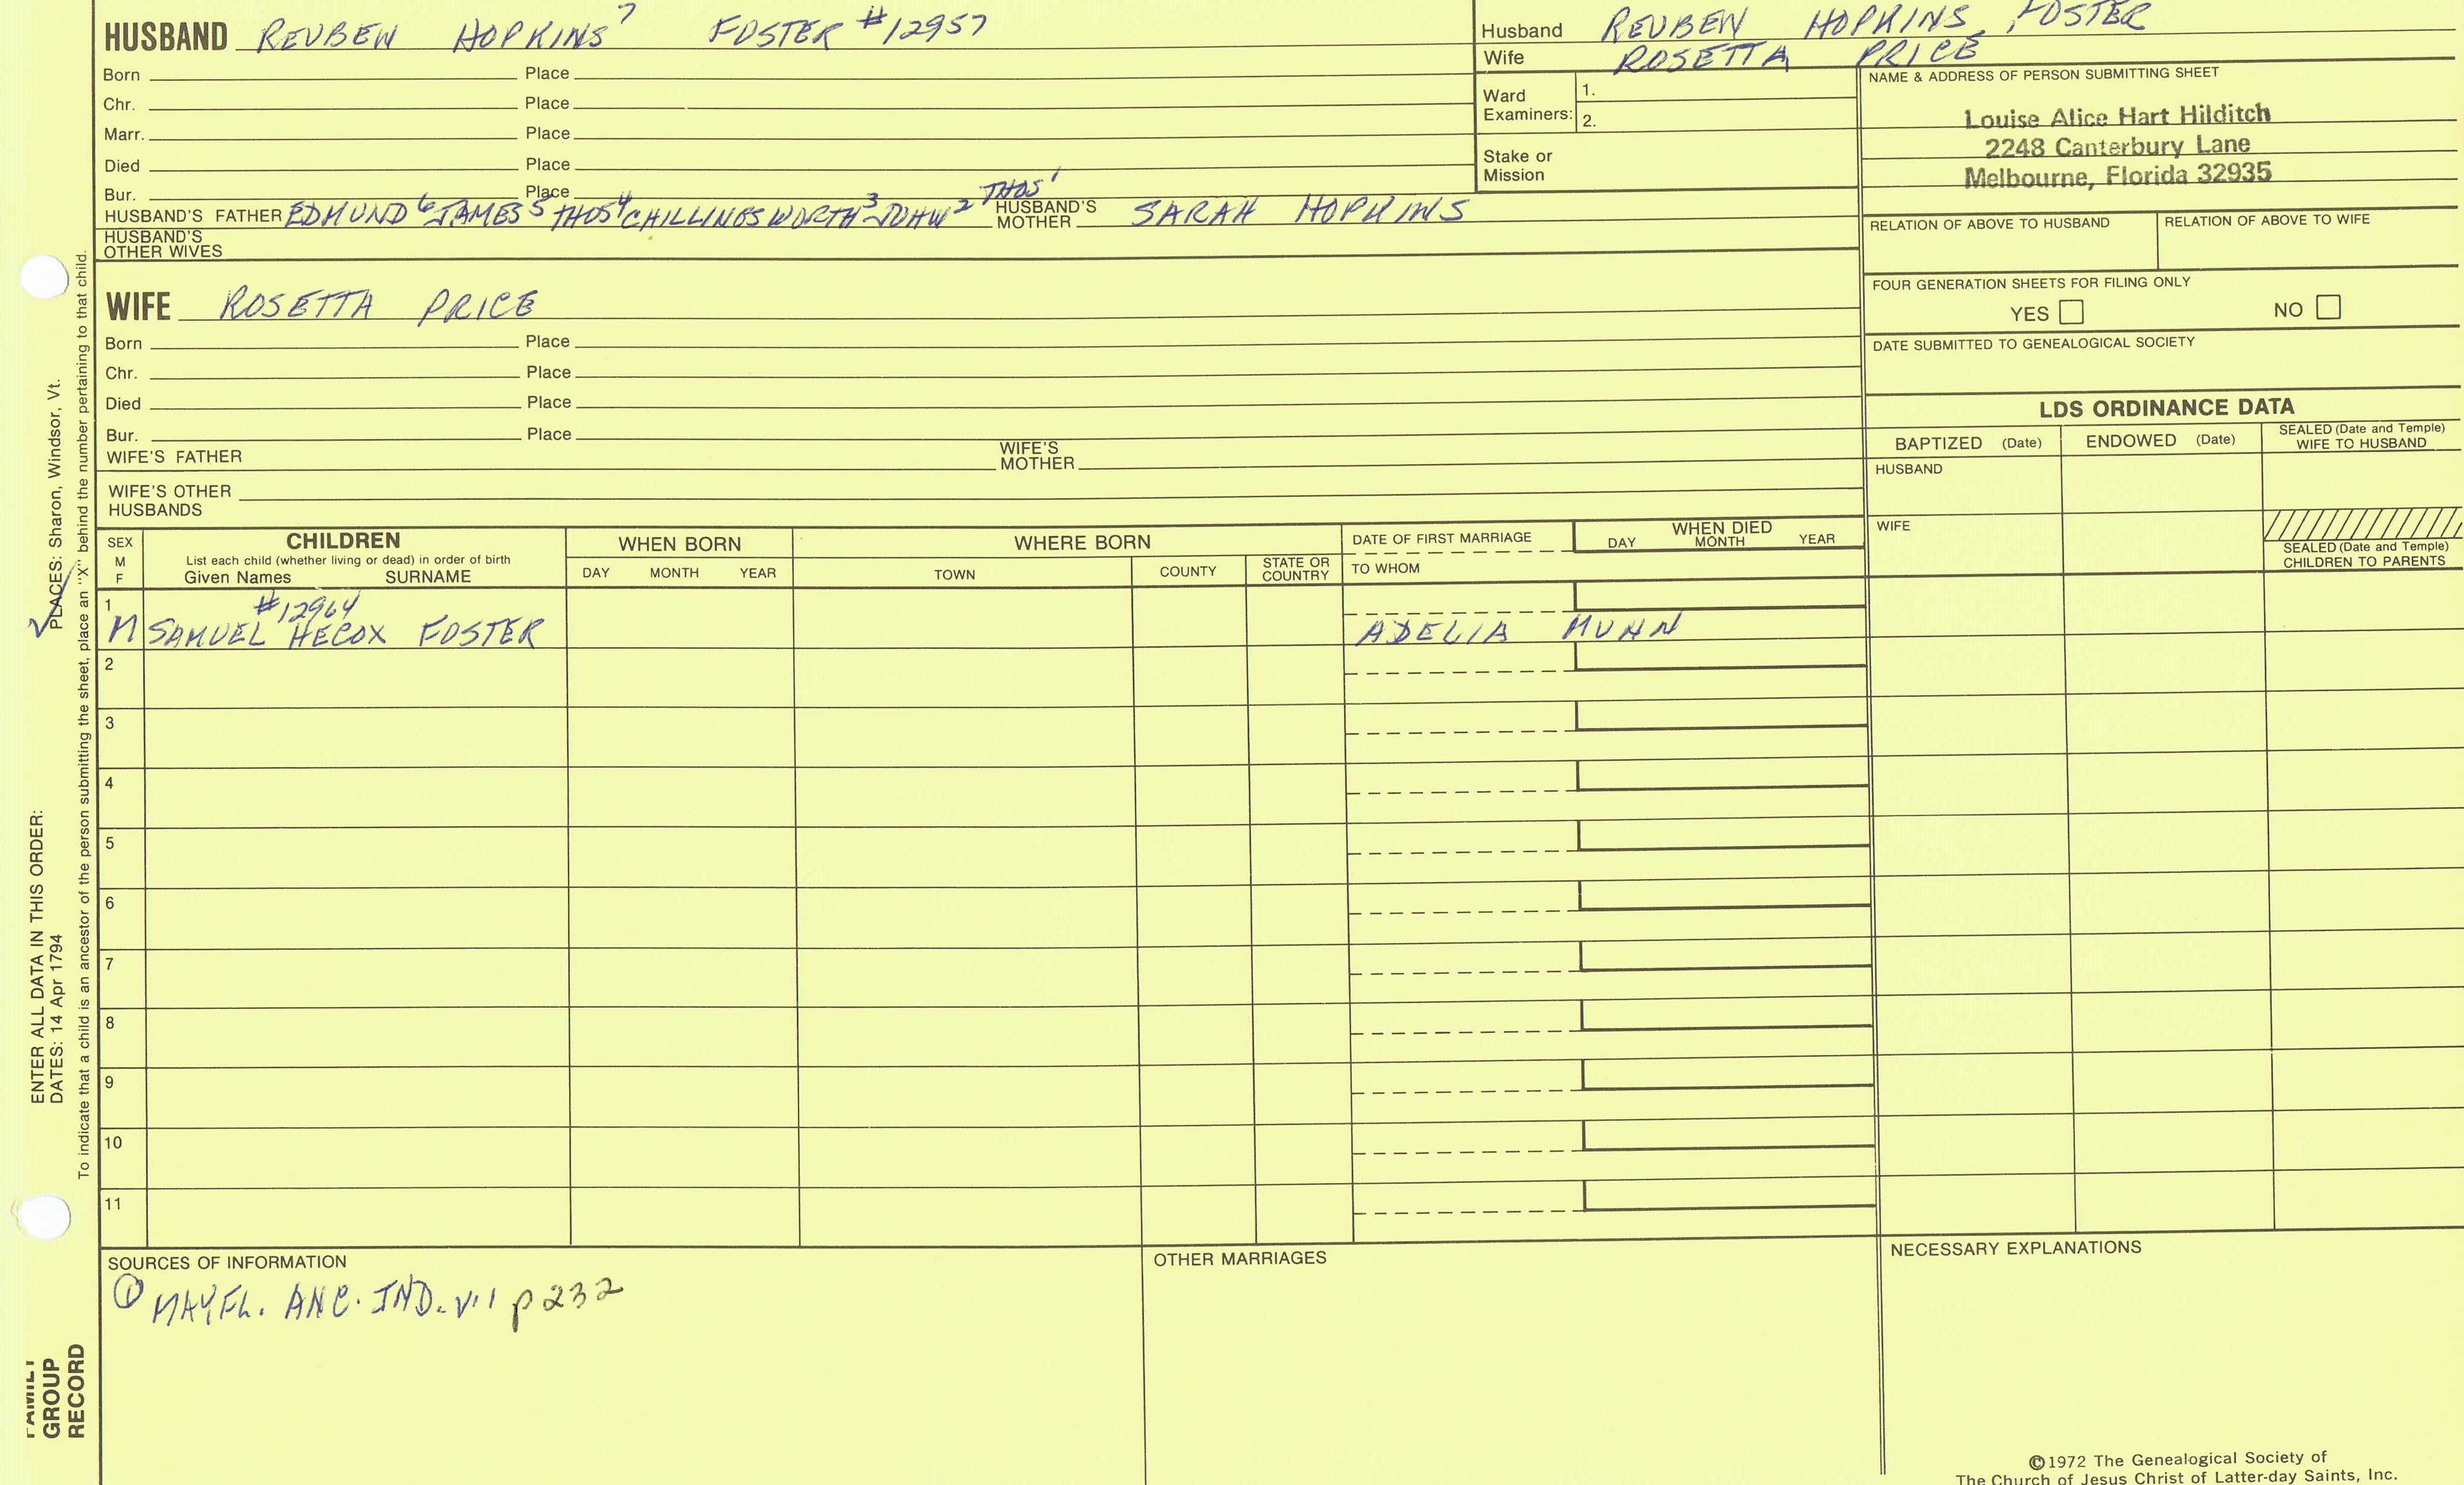 HUSBAND REUBEN HOPKINS 7 FOSTER #12957
Born Place
Chr. Place
Marr. Place
Died Place
Bur. Place
HUSBAND'S FATHER EDMUND 6 JAMES 5 THOS 4 CHILLINGSWORTH 3 JOHN 2 THOS 1 HUSBAND'S MOTHER SARAH HOPKINS
HUSBAND'S OTHER WIVES
Husband REUBEN HOPKINS FOSTER
Wife ROSETTA PRICE
Ward Examiners: 1.
2.
Stake or Mission
NAME & ADDRESS OF PERSON SUBMITTING SHEET
Louise Alice Hart Hilditch
2248 Canterbury Lane
Melbourne, Florida 32935
RELATION OF ABOVE TO HUSBAND RELATION OF ABOVE TO WIFE
FOUR GENERATION SHEETS FOR FILING ONLY
YES NO
DATE SUBMITTED TO GENEALOGICAL SOCIETY
WIFE ROSETTA PRICE
Born Place
Chr. Place
Died Place
Bur. Place
WIFE'S FATHER WIFE'S MOTHER
WIFE'S OTHER HUSBANDS
LDS ORDINANCE DATA
BAPTIZED (Date) ENDOWED (Date) SEALED (Date and Temple) WIFE TO HUSBAND
HUSBAND
WIFE
SEALED (Date and Temple) CHILDREN TO PARENTS
SEX M F
CHILDREN
List each child (whether living or dead) in order of birth
Given Names SURNAME
WHEN BORN
DAY MONTH YEAR
WHERE BORN
TOWN COUNTY STATE OR COUNTRY
DATE OF FIRST MARRIAGE
TO WHOM
WHEN DIED
DAY MONTH YEAR
1 #12964
M SAMUEL HECOX FOSTER ADELIA MUNN
2
3
4
5
6
7
8
9
10
11
SOURCES OF INFORMATION
① MAYFL. ANC. IND. v.1 p 232
OTHER MARRIAGES
NECESSARY EXPLANATIONS
©1972 The Genealogical Society of
The Church of Jesus Christ of Latter-day Saints, Inc.
ENTER ALL DATA IN THIS ORDER:
DATES: 14 Apr 1794 PLACES: Sharon, Windsor, Vt.
To indicate that a child is an ancestor of the person submitting the sheet, place an "X" behind the number pertaining to that child.
FAMILY
GROUP
RECORD